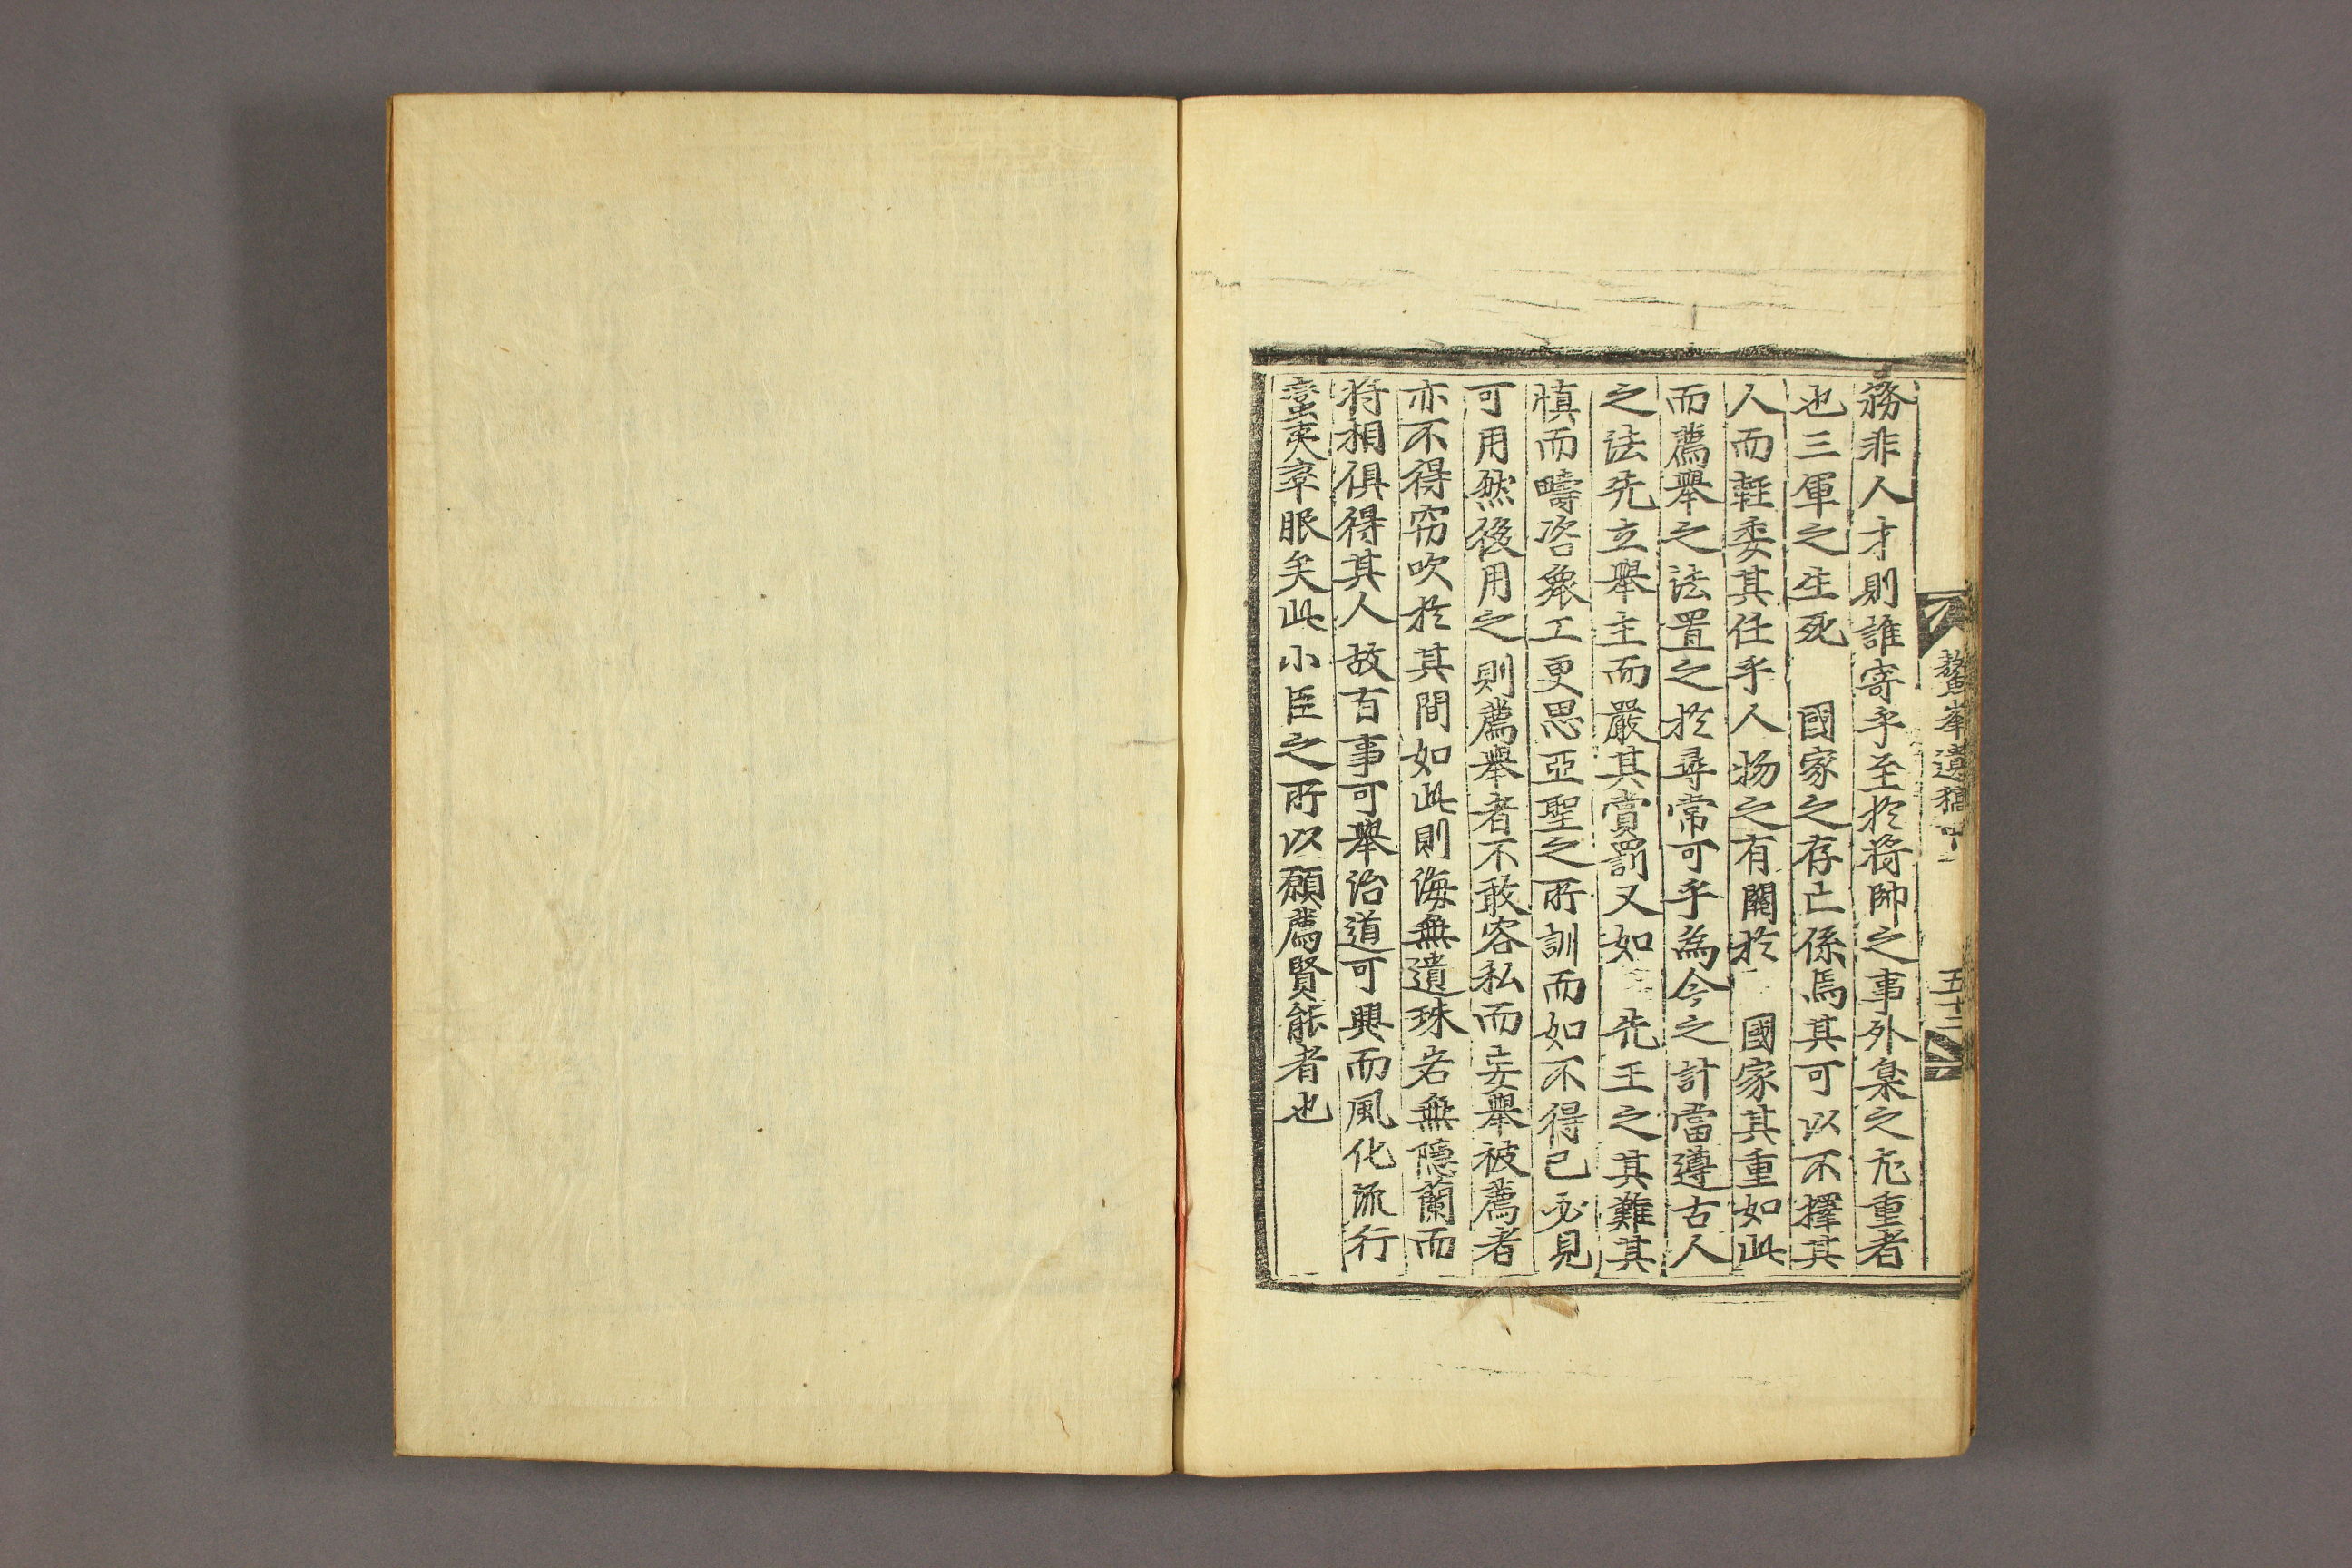 鰲峯遺稿下
五十二
務非人才則誰寄乎至於將帥之事外枲之尤重者
也三軍之生死 國家之存亡係焉其可以不擇其
人而輕委其任乎人物之有關於 國家其重如此
而薦舉之法置之於尋常可乎為今之計當遵古人
之法先立舉主而嚴其賞罰又如 先王之其難其
慎而疇咨象工更思亞聖之所訓而如不得已必見
可用然後用之則薦舉者不敢容私而妄舉被薦者
亦不得窃吹於其間如此則海無遺珠岩無隱蘭而
將相俱得其人故百事可舉治道可興而風化流行
蠻夷率眼矣此小臣之所以願薦賢能者也